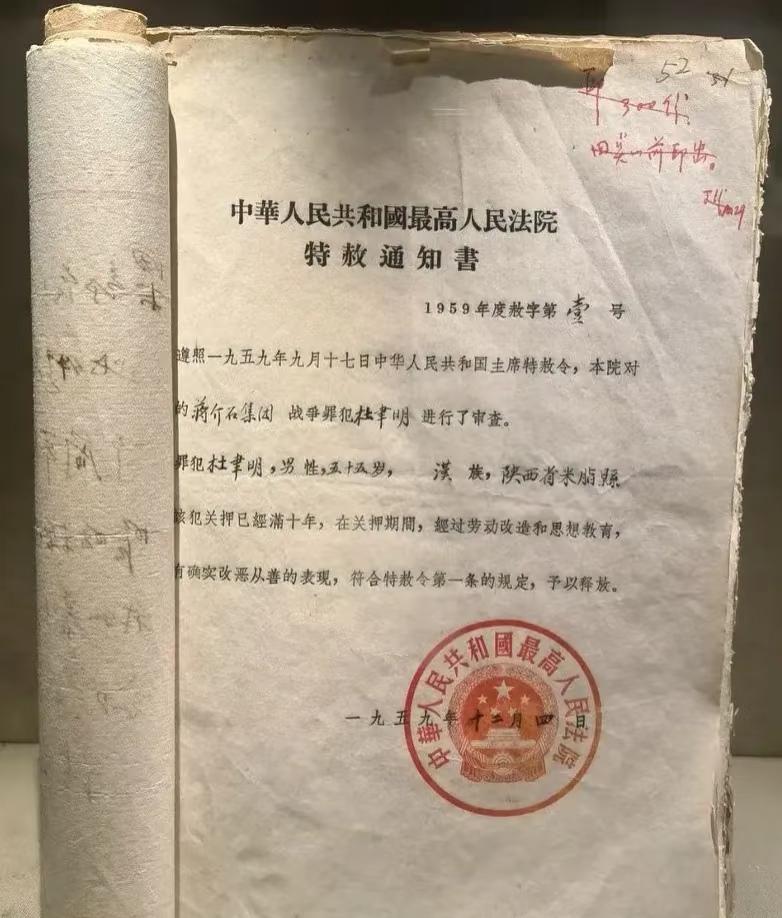 52
中華人民共和國最高人民法院
特赦通知書
1959年度赦字第壹号
遵照一九五九年九月十七日中华人民共和国主席特赦令，本院对
的蒋介石集团 战争罪犯杜聿明 进行了审查。
罪犯杜聿明，男性，五十五岁， 漢族，陕西省米脂縣
该犯关押已經滿十年，在关押期間，經过劳动改造和思想敎育，
有确实改恶从善的表現，符合特赦令第一条的規定，予以释放。
中華人民共和國最高人民法院
一九五九年十二月四日